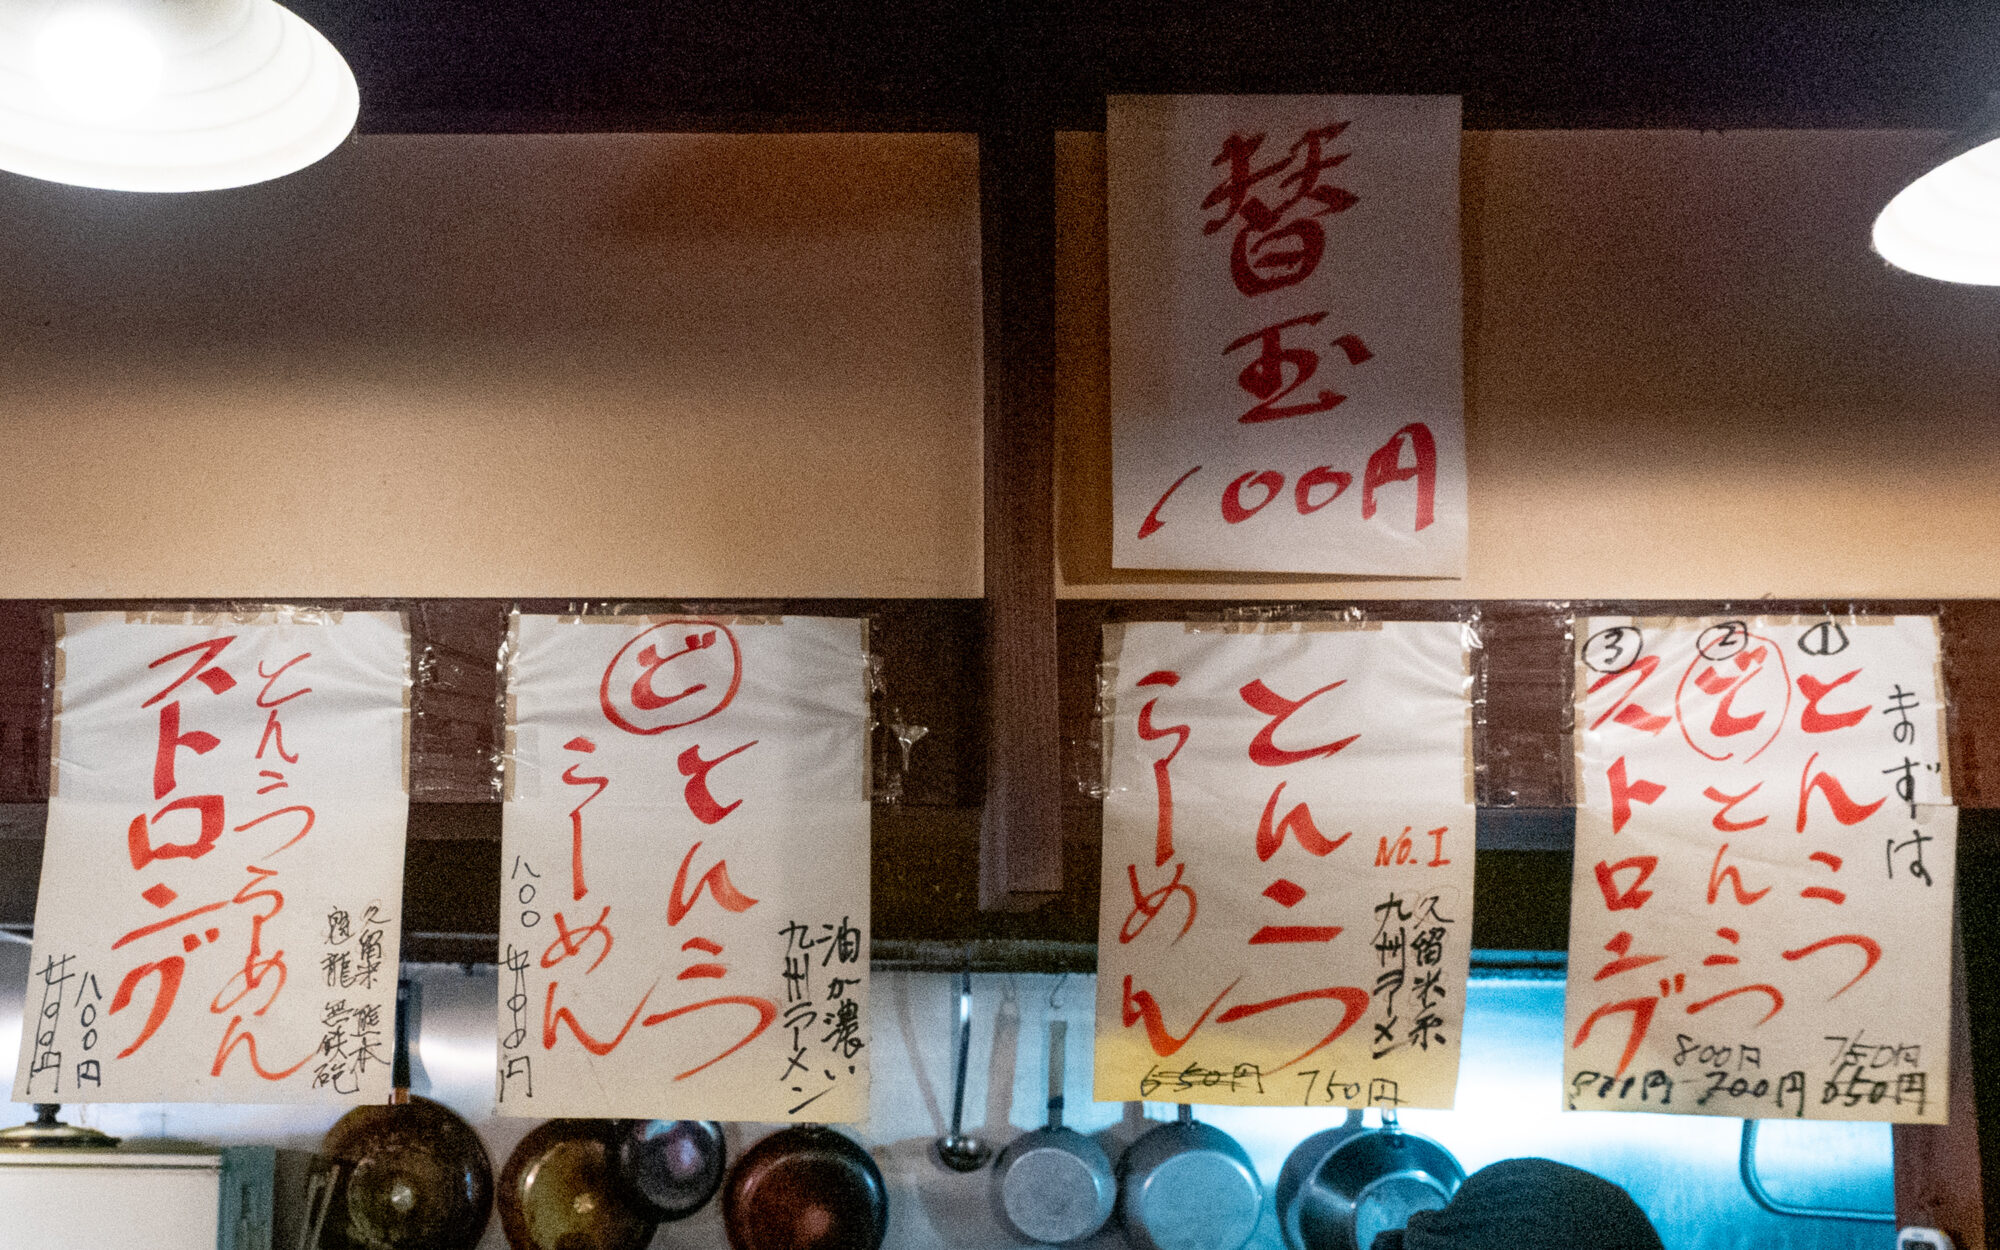 替玉
100円
まずは
①とんこつ
750円
650円
②どとんこつ
800円
700円
③ストロング
とんこつ
らーめん
No.1
久留米系
九州ラーメン
650円
750円
どとんこつ
らーめん
油が濃い
九州ラーメン
八〇〇
円
とんこつらーめん
ストロング
久留米 熊本
魁龍 無鉄砲
八〇〇円